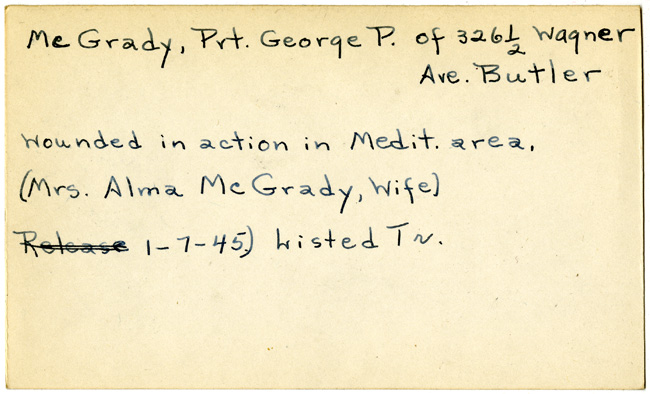 Mc Grady, Prt. George P. of 326 1/2 Wagner
Ave. Butler
Wounded in action in Medit. area.
(Mrs. Alma McGrady, Wife)
Release 1-7-45) Listed Tr.